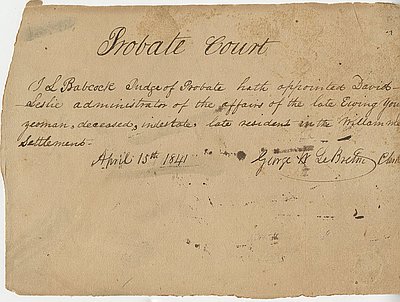 Probate Court
I L Babcock Judge of Probate hath appointed David
Leslie administrator of the affairs of the late Ewing You
yeoman, deceased, indestate, late resident in the Willamme
Settlement.
April 15th 1841 George W Le Breton Clerk